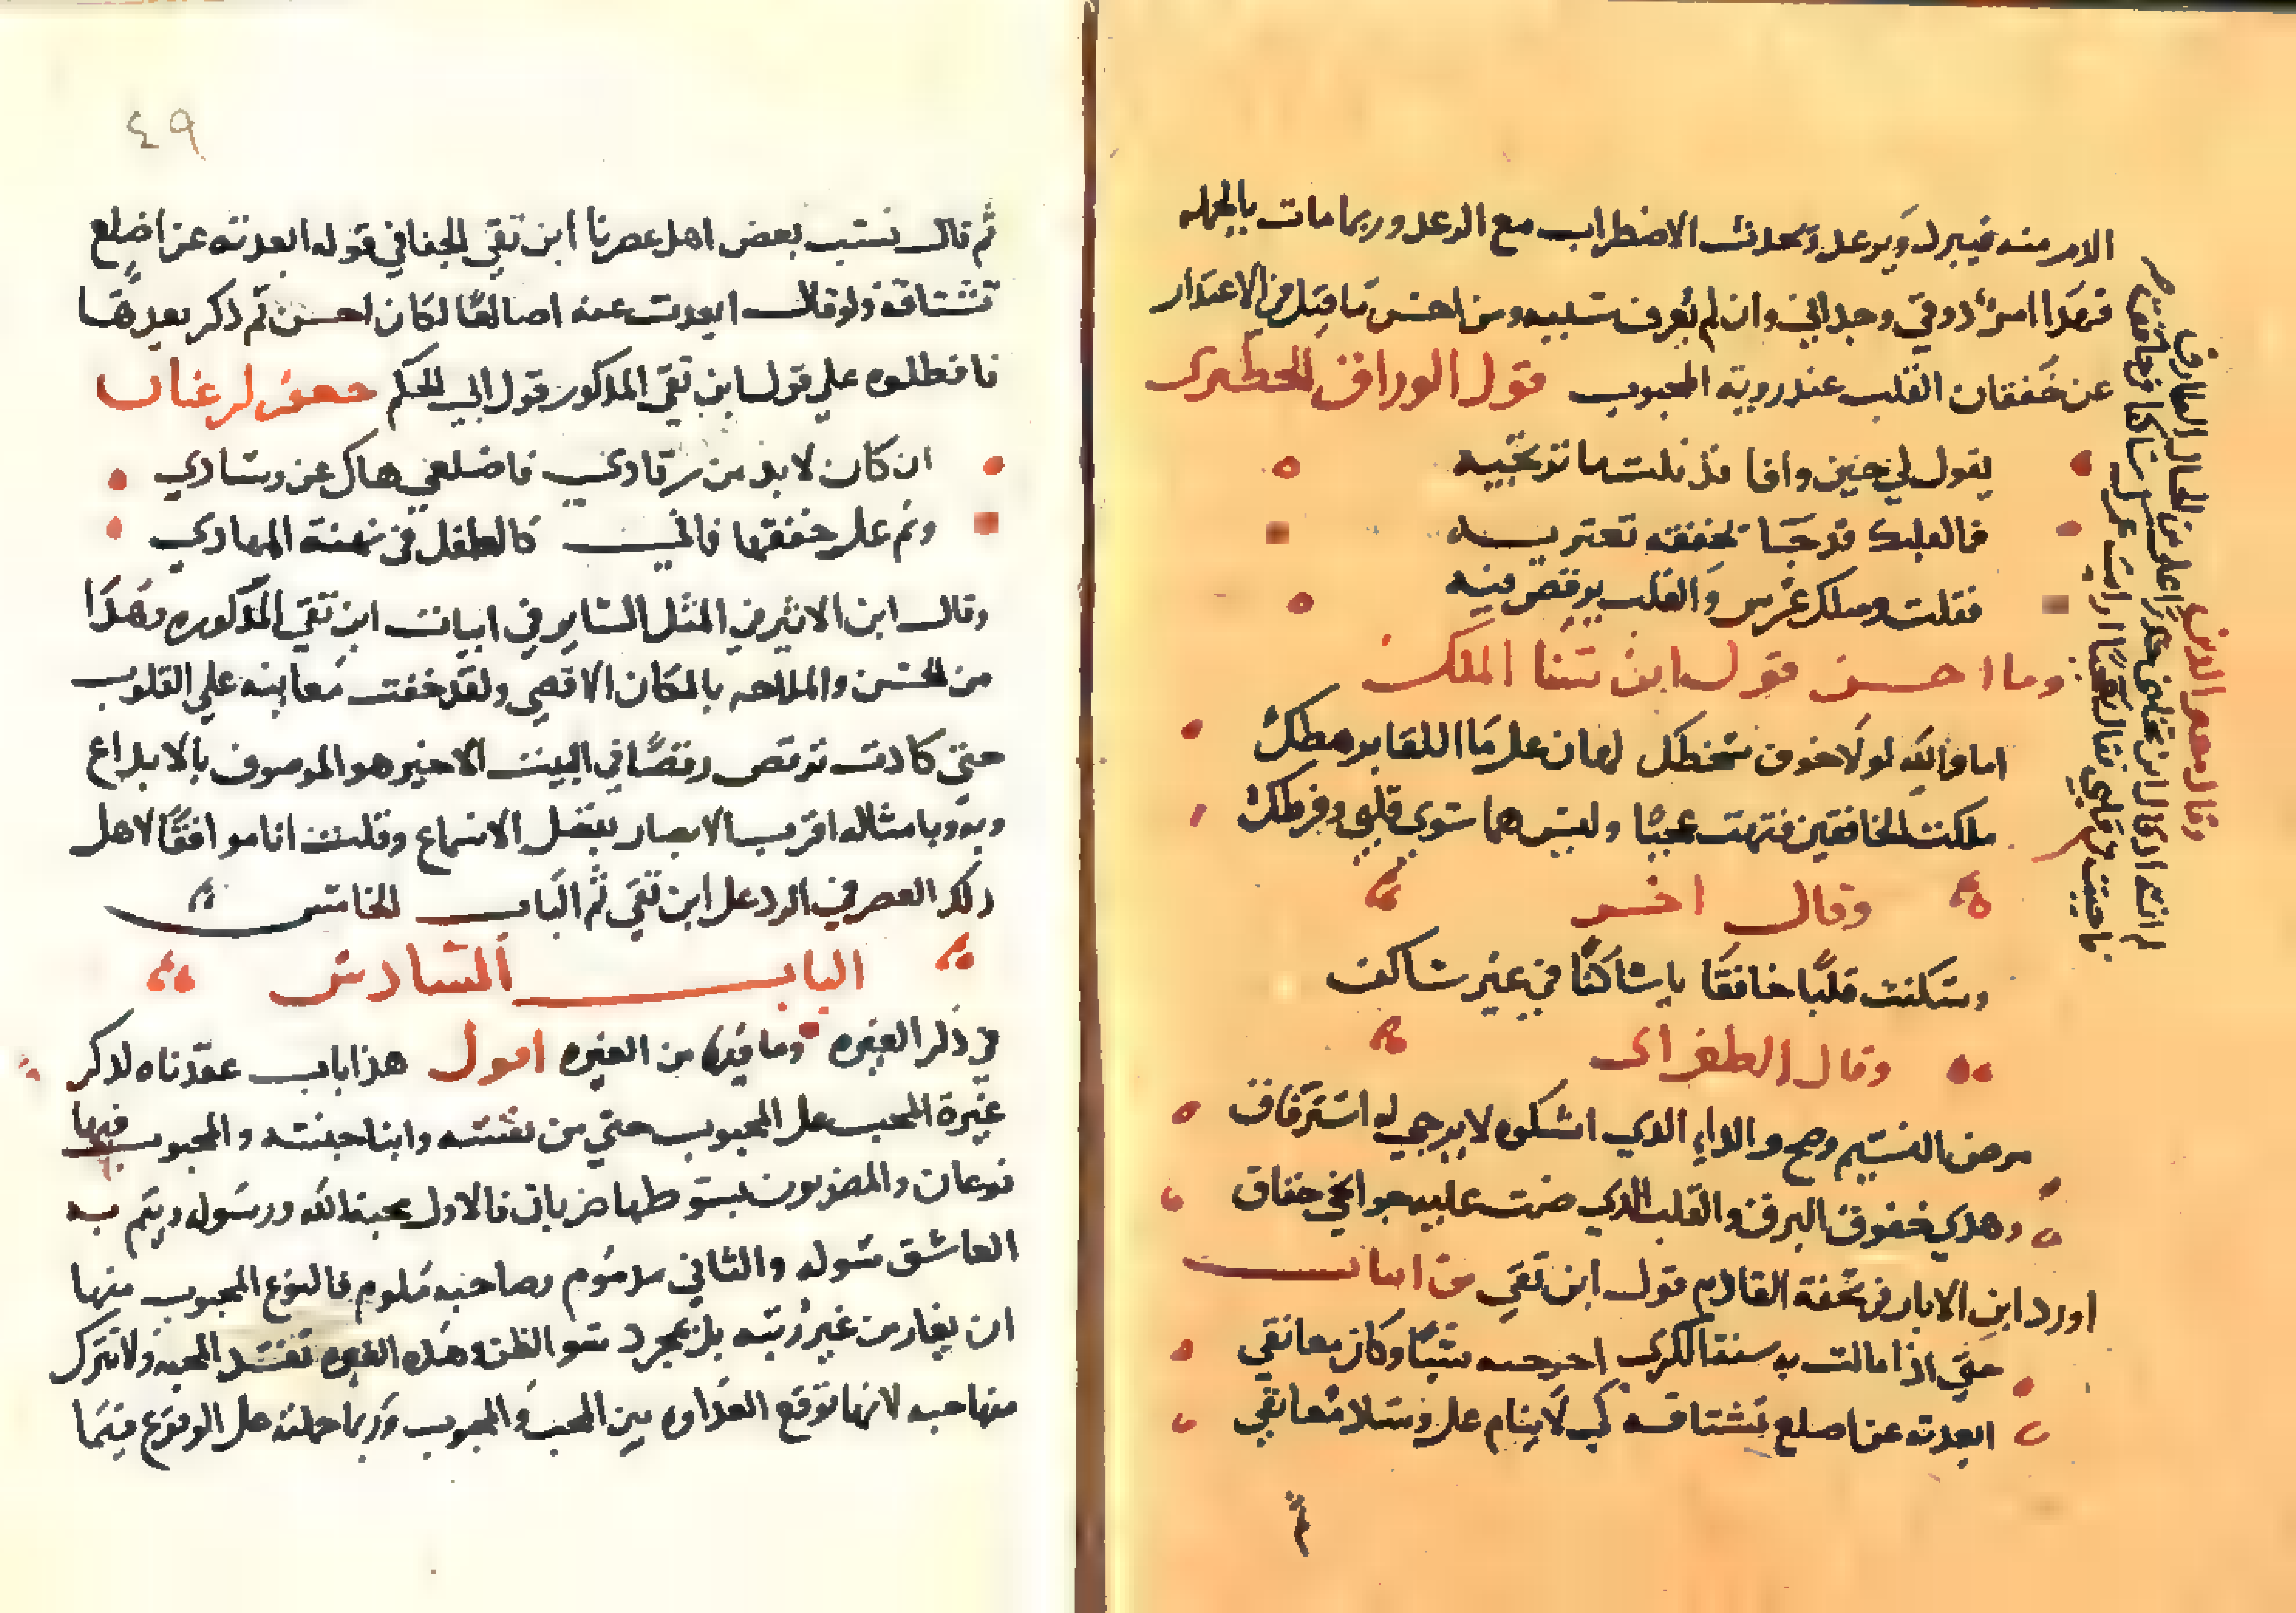 الامر منه فيبرد ويرعد ويحدث الاضطراب مع الرعد وربما مات بالجمله
فهذا امر ذوقي وجداني وان لم يعرف سببه ومن احسن ما قيل في الاعتذار
عن خفقان القلب عند روية المحبوب قول الوراق الحظيرى
يقول لي حين وافا قد نلت ما ترتجيه
فما لقلبك قد جا بخفقه تعتريه
فقلت وصلك عرس والقلب يرقص فيه
وما احسن قول ابن سنا الملك
اما والله لولا خوف سخطك لهان على ما القا برهطك
ملكت الخافقين فتهت عجبا وليس هما سوى قلبي وقرطك
وقال اخر
وسكنت قلبا خافقا يا ساكنا في غير ساكن
وقال الطغراى
مرض النسيم وصح والداء الذي اشكوه لا يرجى له استرقاق
وهدي خفوق البرق والقلب الذي ضمت عليه جوانحي خفاق
اورد ابن الابار في تحفة القادم قول ابن تقي من ابيات
حتى اذا مالت به سنة الكرى احرحته شيئا وكان معانقي
ابعدته عن اضلع تشتاقه كي لا ينام على وسلا معانقي
ثم
وقال معز الدين
لم انسه اذ قال اين تحلني حذرا علي من الخيال الطارق
فاجبت في قلبي فقال تعجبا ارايت عمرك ساكنا في خافق
٤٩
ثم قال نسب بعض اهل عصرنا ابن تقي للجفا في قوله ابعدته عن اضلع
تشتاقه ولو قال ابعدت عنه اضالعا لكان احسن ثم ذكر بعد هذا
فافضلوه على قول ابن تقي المذكور قول ابي الحكم جعفر لرغنان
ان كان لابد من رقادي فاضلعي هاك عن وسادي
ونم على خفقها فاني كالطفل في نهنة المهادي
وقال ابن الاثير في المثل الساير في ابيات ابن تقي المذكوره وهذا
من الحسن والملاحه بالمكان الاقصى ولقد خفت معانيه على القلوب
حتى كادت ترقص رقصا في البيت الاخير هو الموصوف بالابداع
وبه وبامثاله اقرب الابصار بفضل الاسماع وقلت انا موافقا لاهل
ذلك العصر في الرد على ابن تقي ثم الباب الخامس
الباب السادس
في ذكر الغيره وما فيها من العيره اقول هذا باب عقدناه لذكر
غيرة المحب على المحبوب حتي من نفسه وابنا جنسه والمحبوب فيها
نوعان والمضروب بسوطها ضربان فالاول محبة الله ورسوله ويتم به
العاشق سوله والثاني مذموم وصاحبه ملوم فالنوع المحبوب منها
ان يغار من غير رتبه بل بمجرد سو الظن وهذه الغيره تفسد المحبه ولا تترك
منها حبه لانها توقع العداوه بين المحب والمحبوب وربما حملته على الوقوع فيما